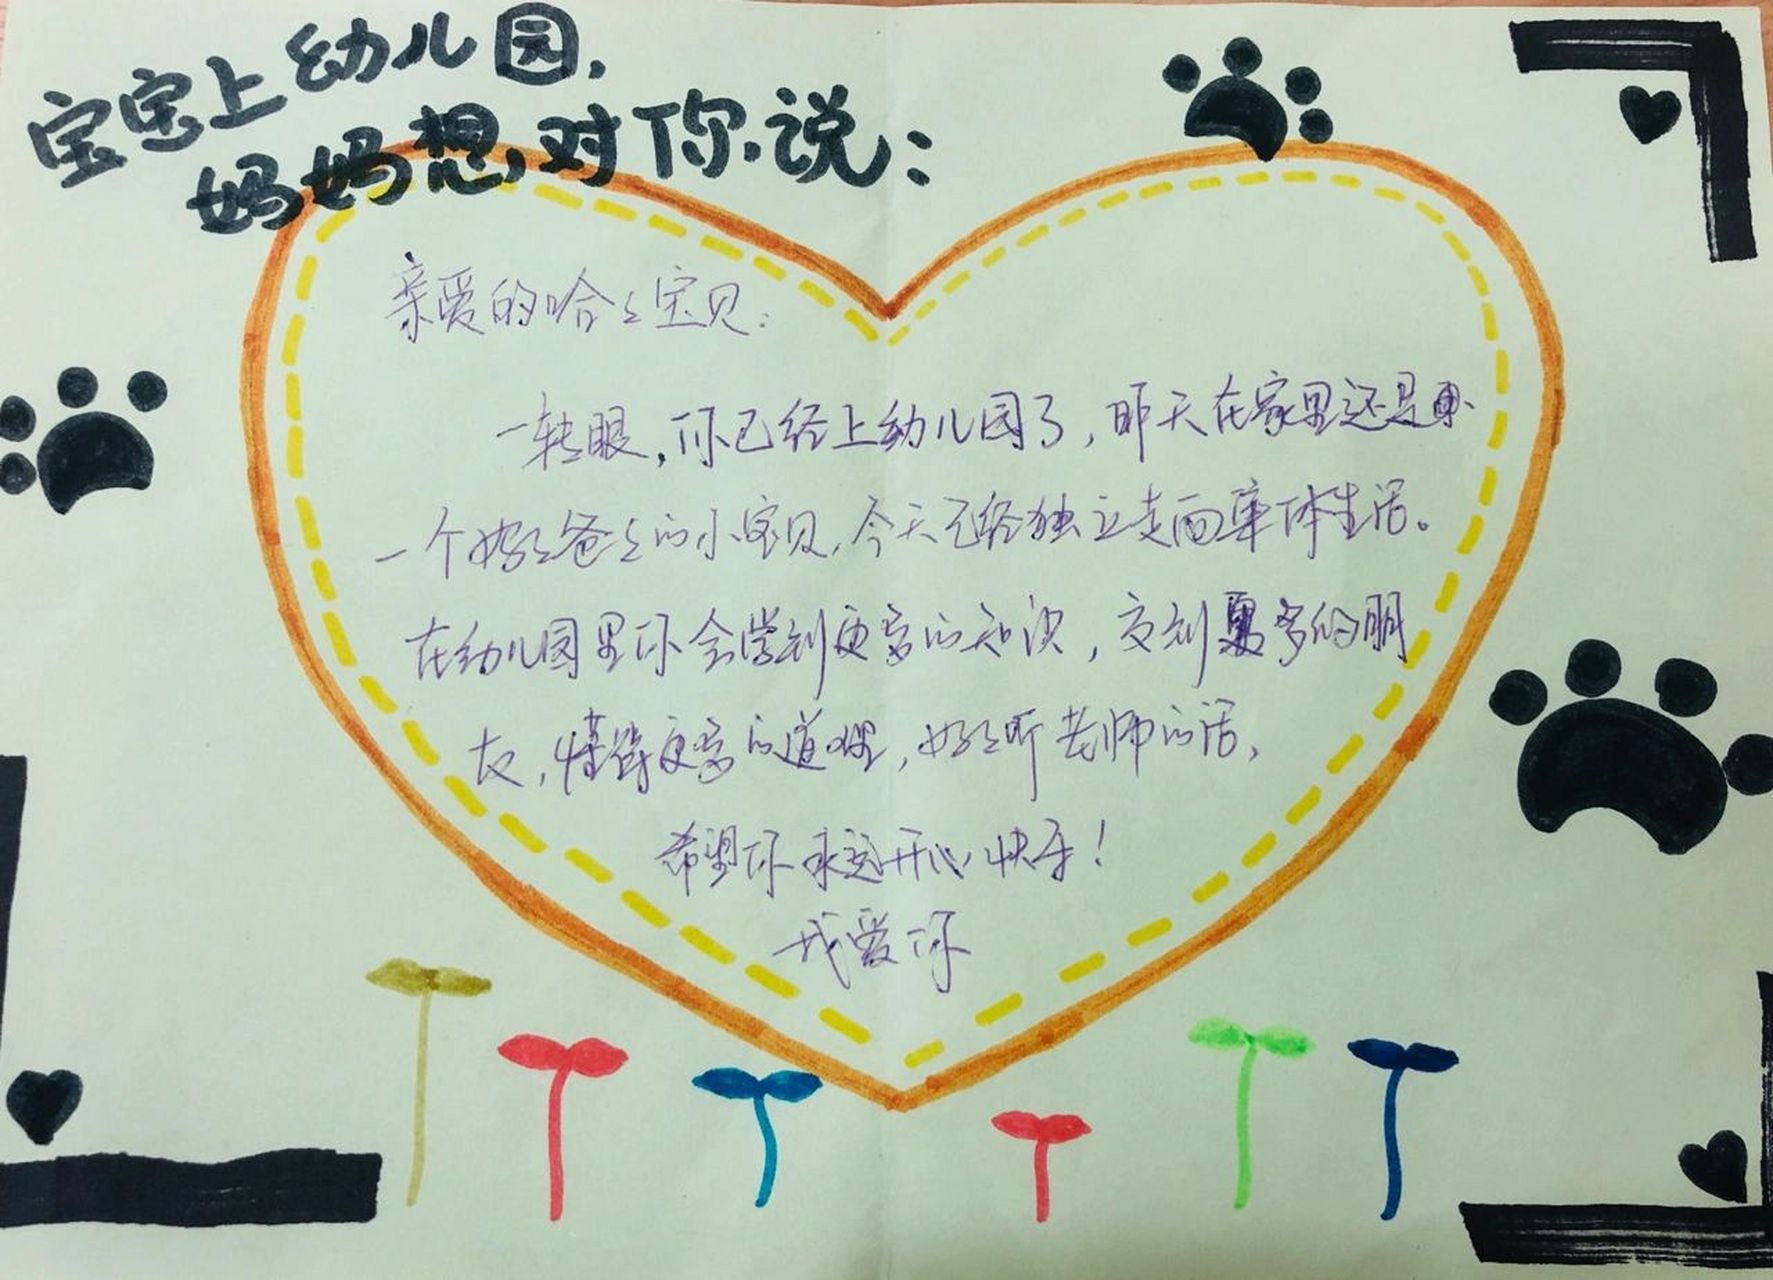 宝宝上幼儿园，
妈妈想对你说：
亲爱的哈哈宝贝：
一转眼，你已经上幼儿园了，昨天在家里还是
一个妈妈爸爸的小宝贝，今天已经独立走向集体生活。
在幼儿园里你会学到更多的知识，交到更多的朋
友，懂得更多的道理，好好听老师的话，
希望你永远开心快乐！
我爱你